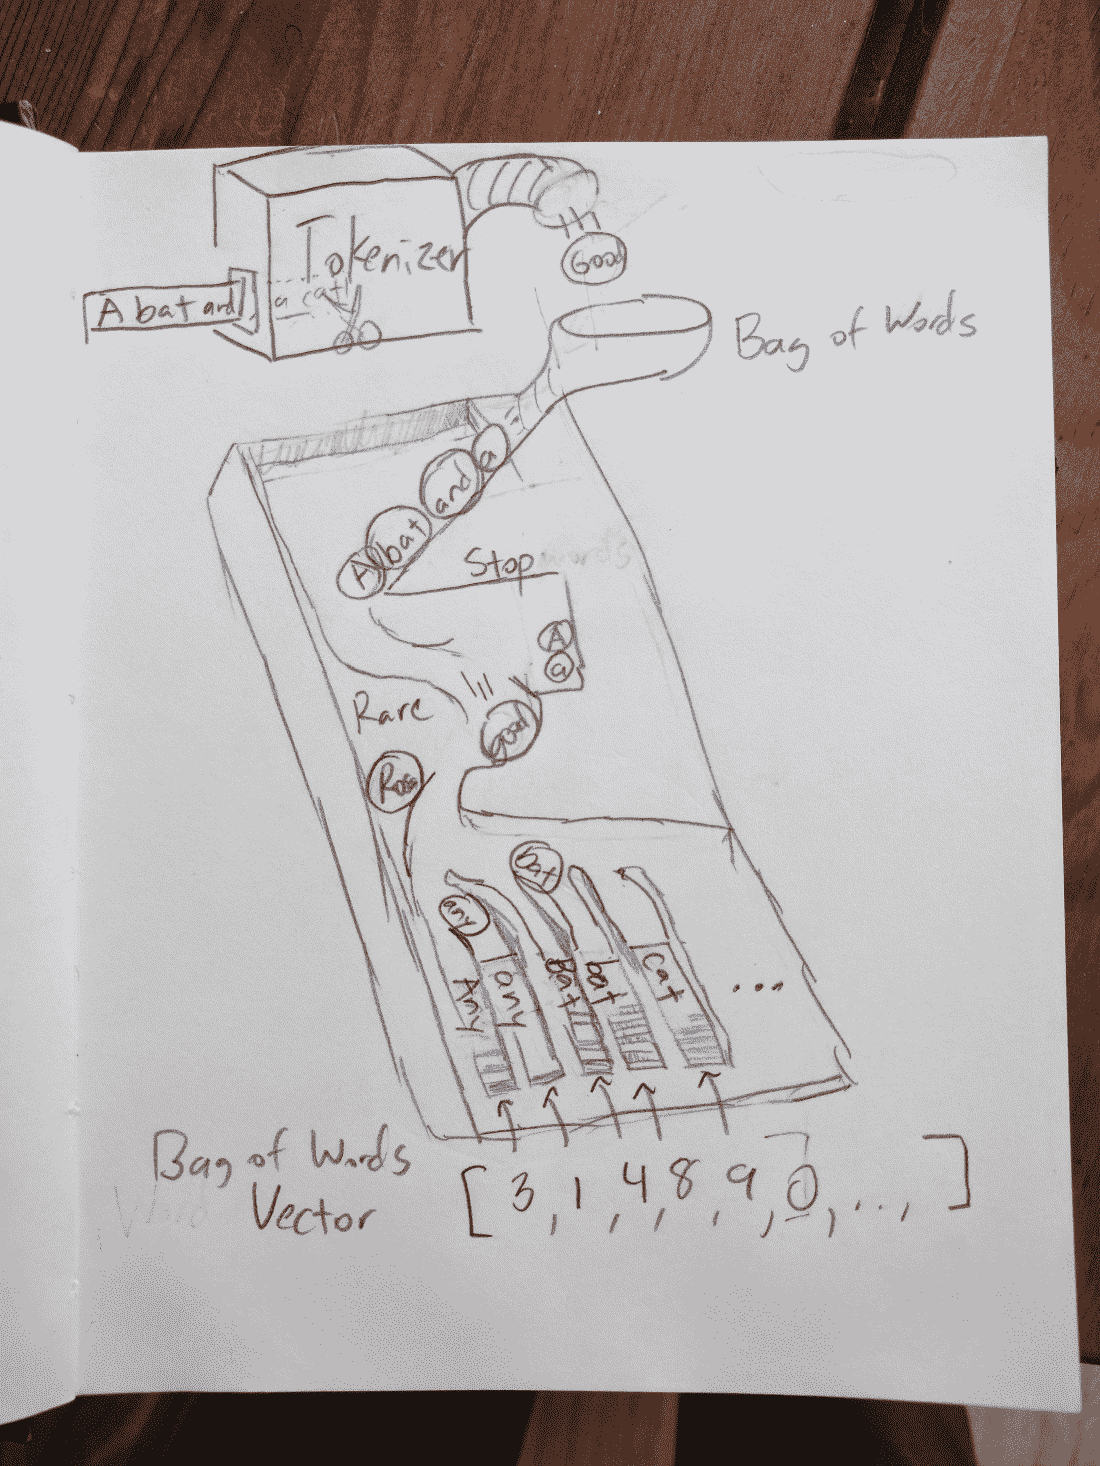 Tokenizer
Good
A bat and
a cat
Bag of Words
a
and
bat
A
Stop words
A
a
Rare
good
Rosa
Bat
any
Any
any
Bat
bat
cat
...
Bag of Words
Vector
[3, 1, 4, 8, 9, 0, ..., ]
Word